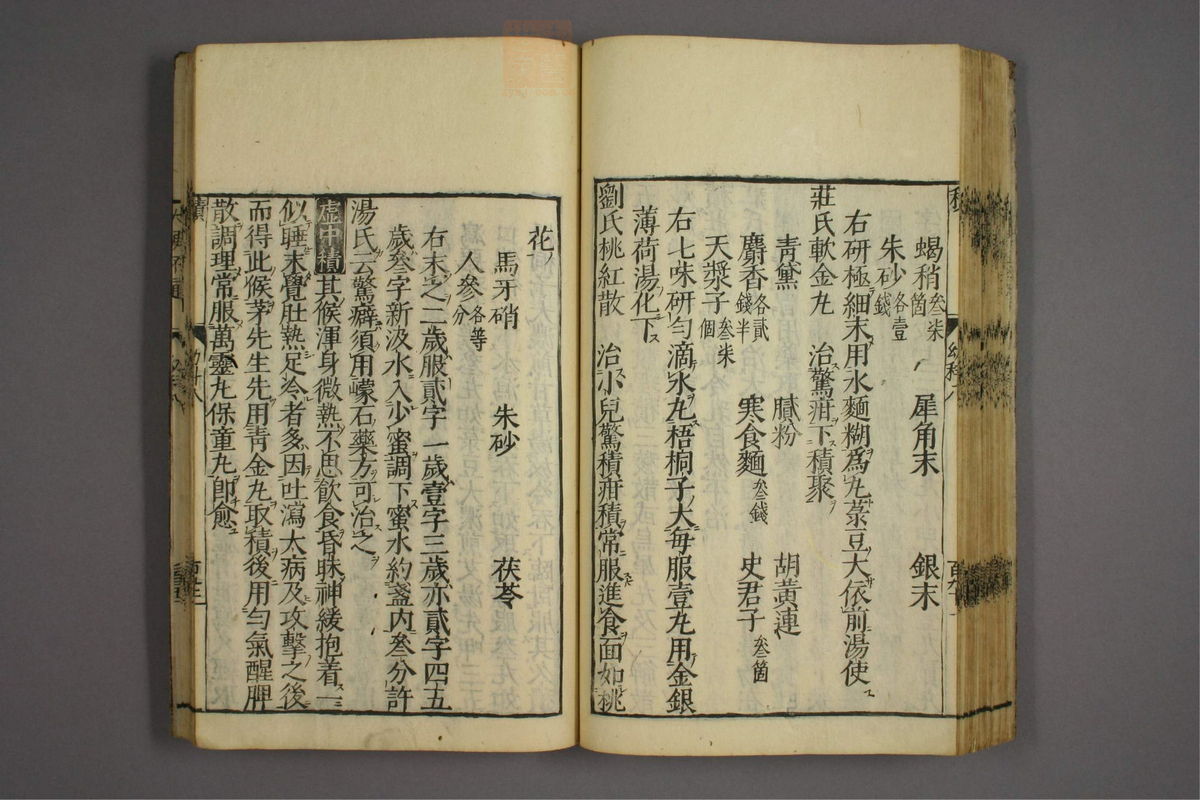 蝎稍叁箇 犀角末 銀末
朱砂各壹錢
右研極細末用水麵糊為丸菉豆大依前湯使
莊氏軟金丸 治驚疳下積聚
青黛 膩粉 胡黄連
麝香各貳錢半 寒食麵叁錢 史君子叁箇
天漿子叁個
右七味研勻滴水丸梧桐子大每服壹丸用金銀
薄荷湯化下
劉氏桃紅散 治小兒驚積疳積常服進食面如桃
花
馬牙硝 朱砂 茯苓
人參各等分
右末之二歲服貳字一歲壹字三歲亦貳字四五
歲叁字新汲水入少蜜調下蜜水約盞内叁分許
湯氏云驚癖須用礞石藥方可治之
虚中積其候渾身微熱不思飲食昏昧神緩抱着一
似睡未覺肚熱足冷者多因吐瀉大病及攻擊之後
而得此候茅先生先用青金丸取積後用勻氣醒脾
散調理常服萬靈丸保童丸即愈